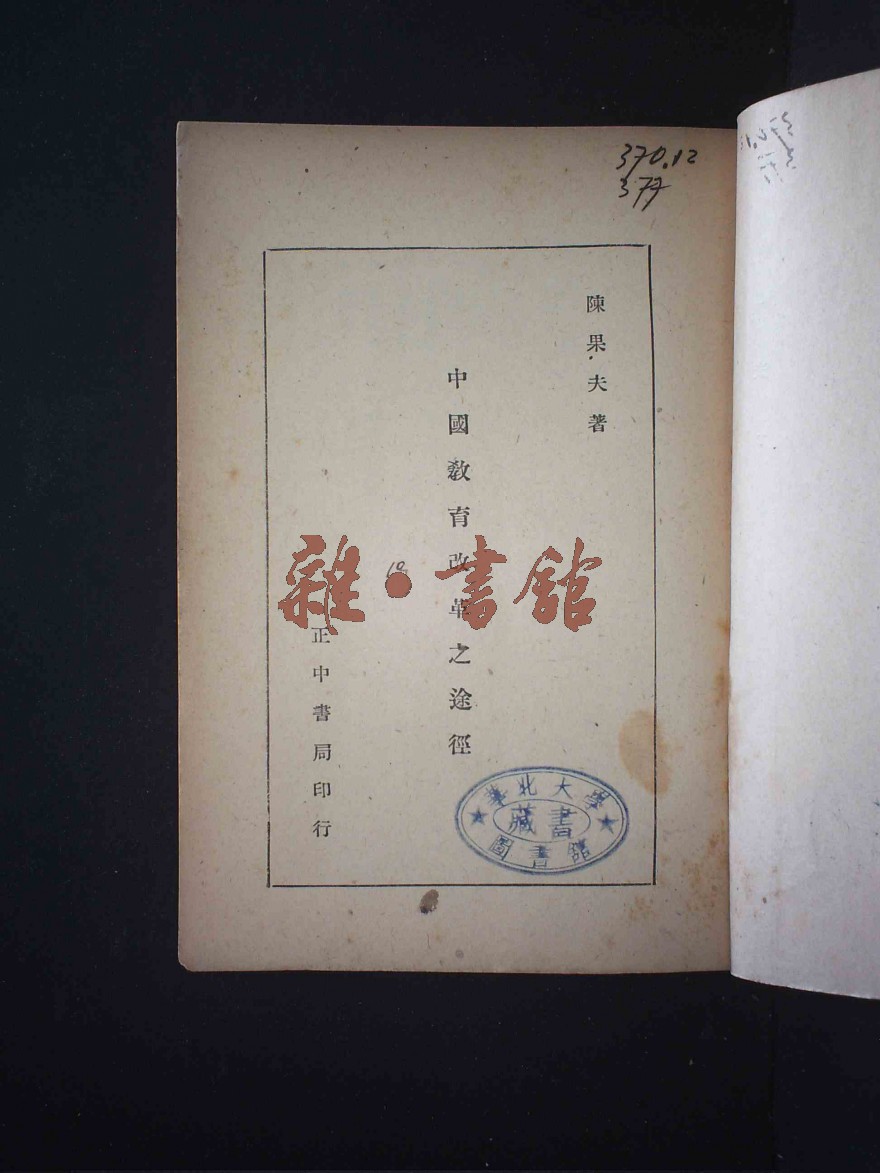 370.12
377
陳果夫著
中國教育改革之途徑
正中書局印行
雜·書館
華北大學
藏書
圖書館